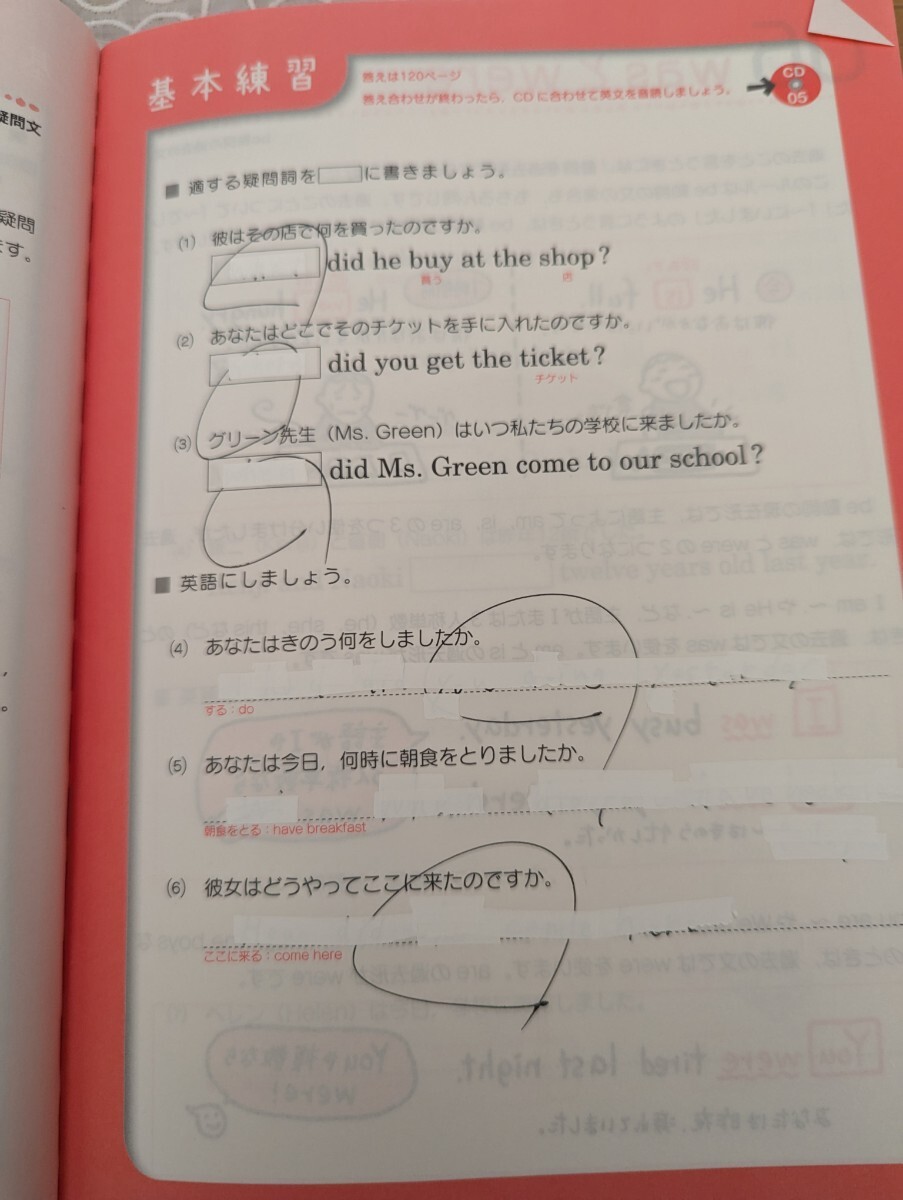 疑問文
疑問
です。
基本練習
答えは120ページ
答え合わせが終わったら，CDに合わせて英文を音読しましょう。
CD
05
■ 適する疑問詞を□に書きましょう。
(1) 彼はその店で何を買ったのですか。
did he buy at the shop?
買う 店
(2) あなたはどこでそのチケットを手に入れたのですか。
did you get the ticket?
チケット
(3) グリーン先生（Ms. Green）はいつ私たちの学校に来ましたか。
did Ms. Green come to our school?
■ 英語にしましょう。
(4) あなたはきのう何をしましたか。
する：do
(5) あなたは今日，何時に朝食をとりましたか。
朝食をとる：have breakfast
(6) 彼女はどうやってここに来たのですか。
ここに来る：come here